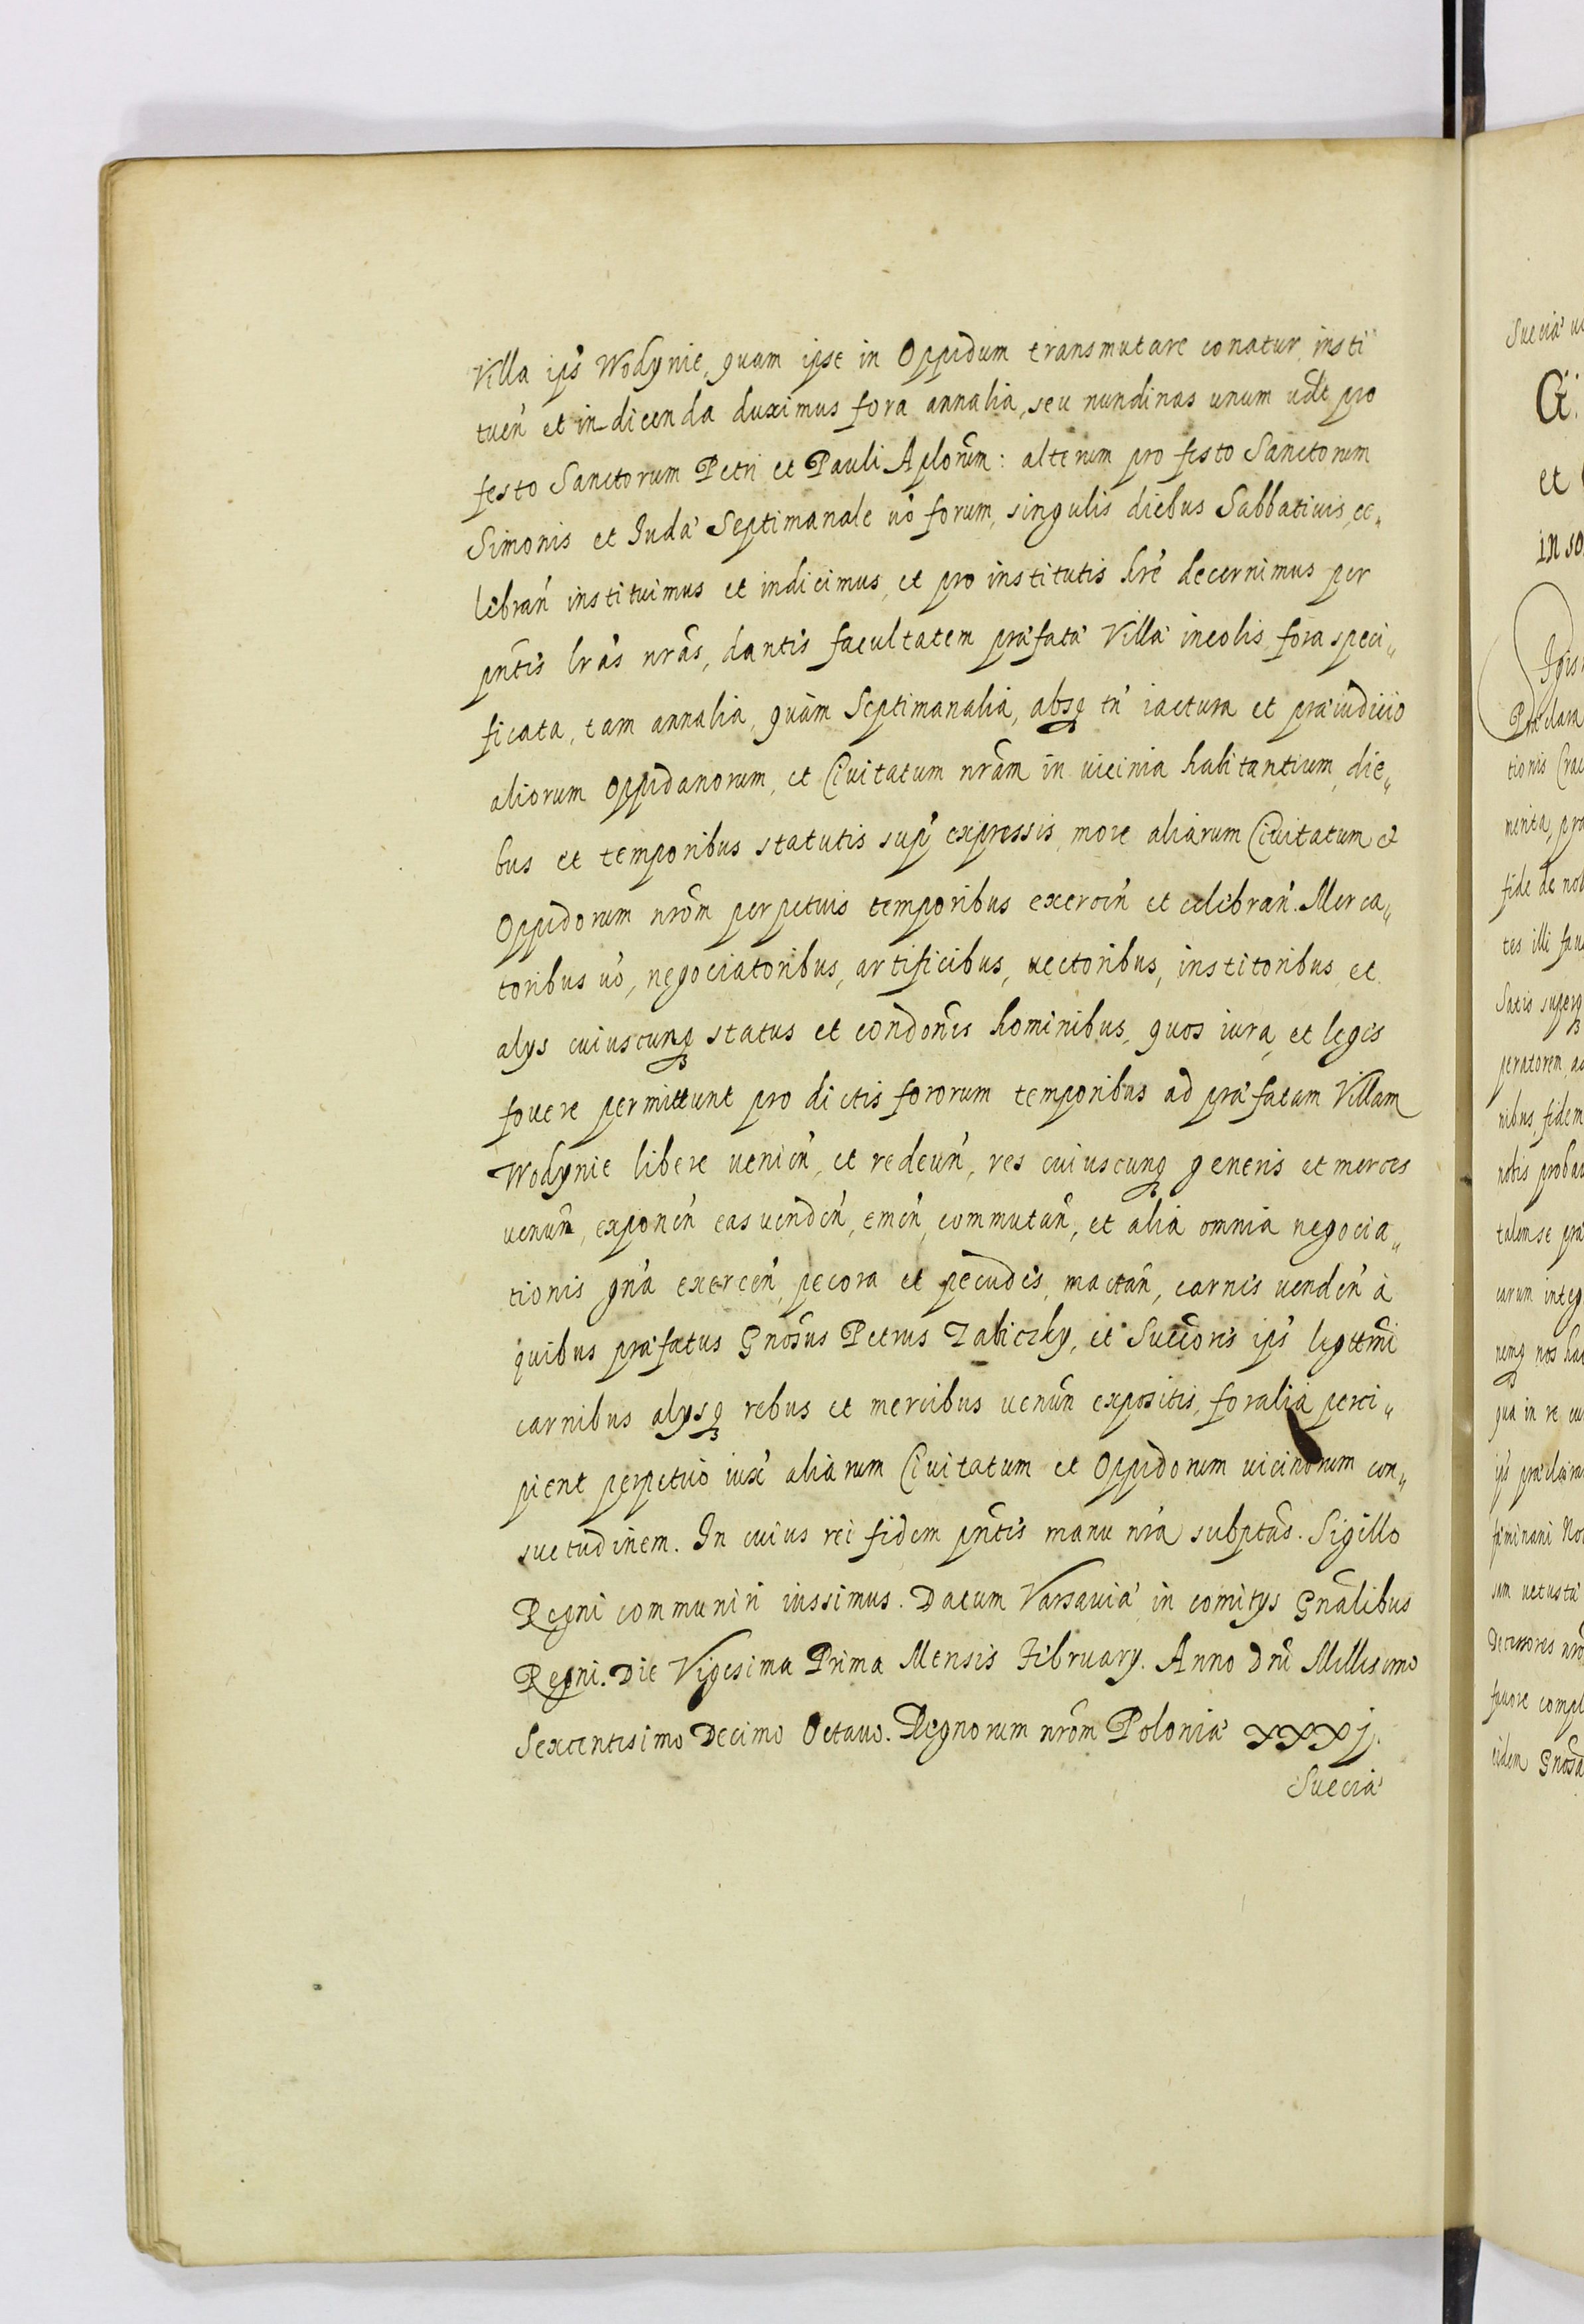 Villa ips̃ Wodynie, quam ipse in Oppidum transmutare conatur, insti„
tueñ et indicenda duximus fora annalia, seu nundinas unum vdlt pro
festo Sanctorum Petri et Pauli Aplorũm: alterum pro festo Sanctorum
Simonis et Judæ Septimanale vo forum, singulis diebus Sabbativis, ce„
lebrañ instituimus et indicimus, et pro institutis hrẽ decernimus per
pñtis lrãs nrãs, dantis facultatem præfatæ Villæ incolis, fora speci„
ficata, tam annalia, quàm Septimanalia, absq tñ iactura et præiudicio
aliorum Oppidanorum, et Civitatum nrãm in vicinia habitantium, die„
bus et temporibus statutis sup̃ expressis, more aliarum Civitatum et
Oppidorum nrõm perpetuis temporibus exerceñ et celebrañ. Merca„
toribus vo, negociatoribus, artificibus, vectoribus, institoribus, et
alys cuiuscunq status et condonẽs hominibus, quos iura, et legis
fovere permittunt pro dictis fororum temporibus ad præfatam Villam
Wodynie libere venieñ, et redeuñ, res cuiuscunq generis et merces
venum̃, exponeñ eas vendeñ, emeñ, commutañ, et alia omnia negocia„
tionis gña exerceñ, pecora et pecudes, mactañ, carnis vendeñ à
quibus præfatus Gnõsus Petrus Zaliczky, et Succõris ips̃ legttmi
carnibus alysq rebus et mercibus venum̃ expositis, foralia perci„
pient perpetuò iux̃ aliarum Civitatum et Oppidorum vicinorum con„
suetudinem. In cuius rei fidem pñtis manu nrã subptãs. Sigillo
Regni communiri iussimus. Datum Varsaviæ in comitys Gnãlibus
Regni. Die Vigesima Prima Mensis February. Anno Dnĩ Millesimo
Sexcentesimo Decimo Octavo. Regnorum nrõm Poloniæ xxxj.
Sueciæ
Sueciæ
et
tionis
fide de
tes illi
Satis
peratorem
nibus, fidem
nobis
talem se
earum
nemq nos
qua in re
sum vetustæ
favore
eidem